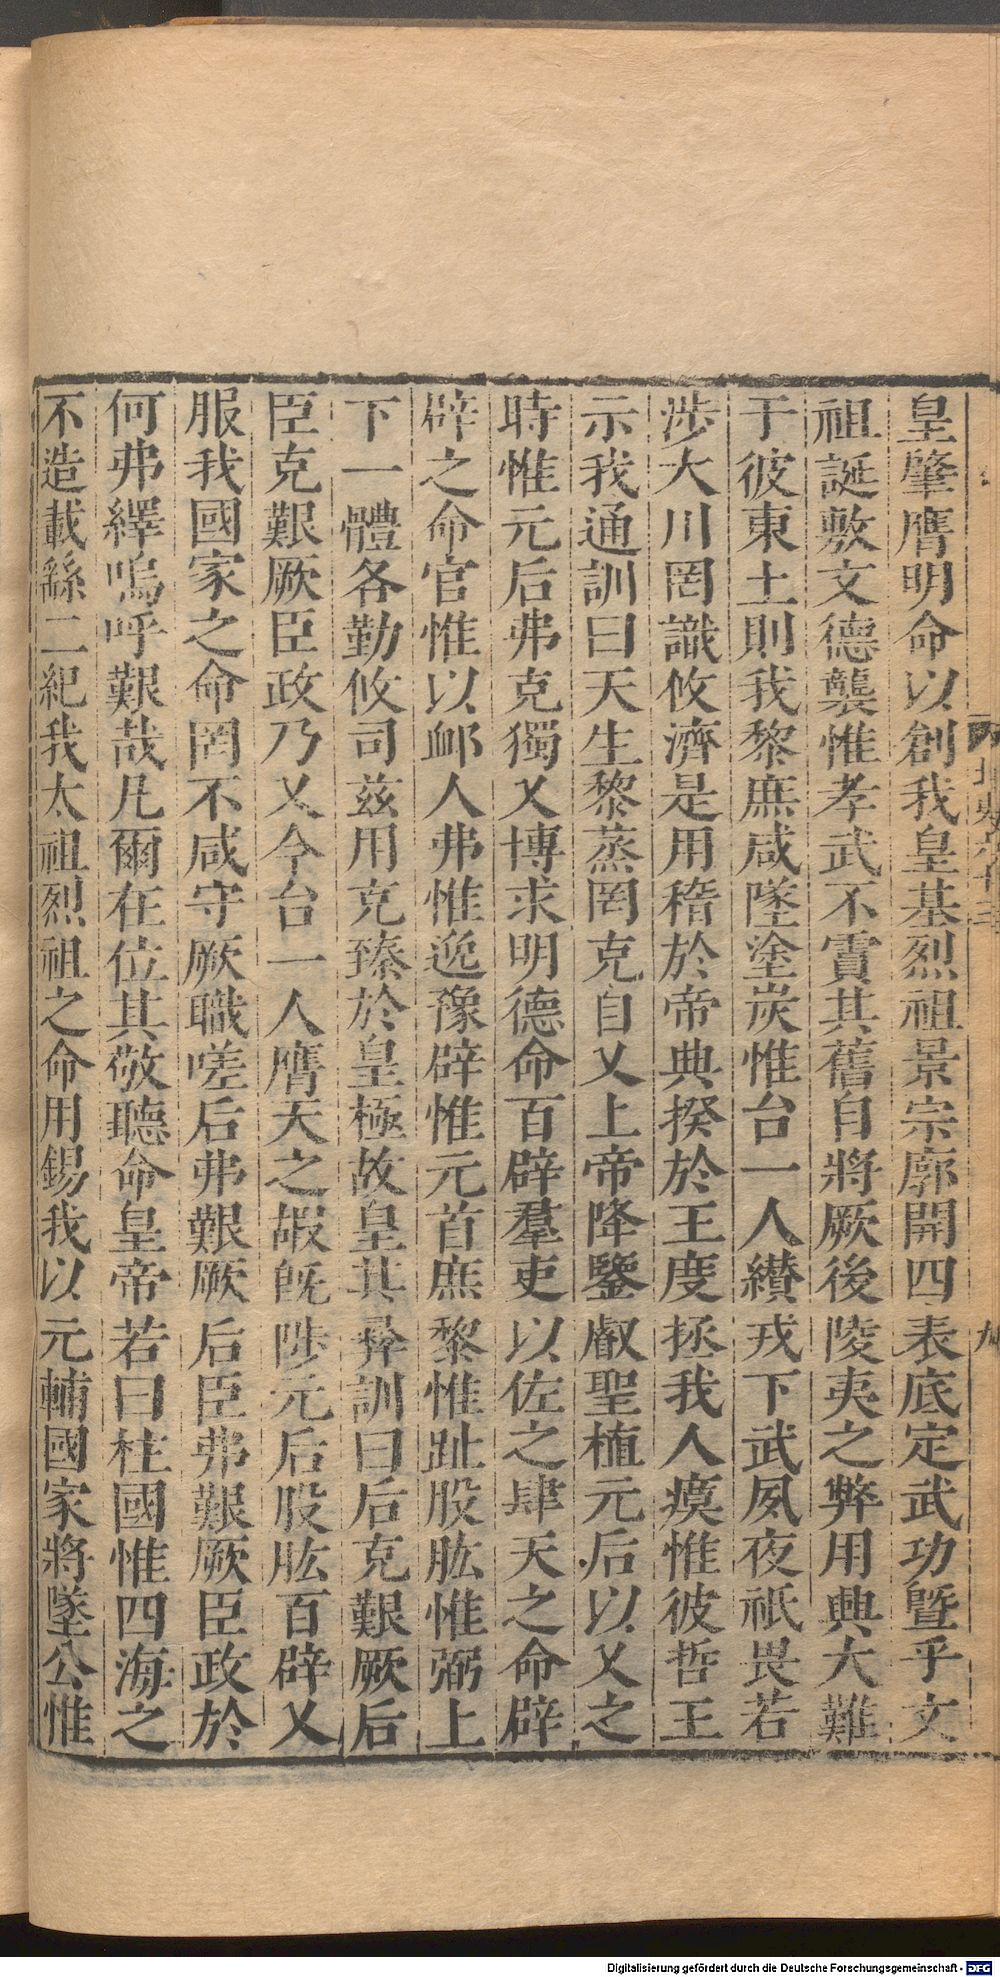 皇肇膺明命以創我皇基烈祖景宗廓開四表底定武功曁乎文
祖誕敷文德襲惟孝武不霣其舊自將厥後陵夷之弊用興大難
于彼東土則我黎庶咸墜塗炭惟台一人纘戎下武夙夜祇畏若
涉大川罔識攸濟是用稽於帝典揆於王度拯我人瘼惟彼哲王
示我通訓曰天生黎蒸罔克自乂上帝降鑒叡聖植元后以乂之
時惟元后弗克獨乂博求明德命百辟羣吏以佐之肆天之命辟
辟之命官惟以卹人弗惟逸豫辟惟元首庶黎惟趾股肱惟弼上
下一體各勤攸司兹用克臻於皇極故皇其彝訓曰后克艱厥后
臣克艱厥臣政乃乂今台一人膺天之嘏旣陟元后股肱百辟乂
服我國家之命罔不咸守厥職嗟后弗艱厥后臣弗艱厥臣政於
何弗繹嗚呼艱哉凡爾在位其敬聽命皇帝若曰柱國惟四海之
不造載繇二紀我太祖烈祖之命用錫我以元輔國家將墜公惟
九
Digitalisierung gefördert durch die Deutsche Forschungsgemeinschaft - DFG